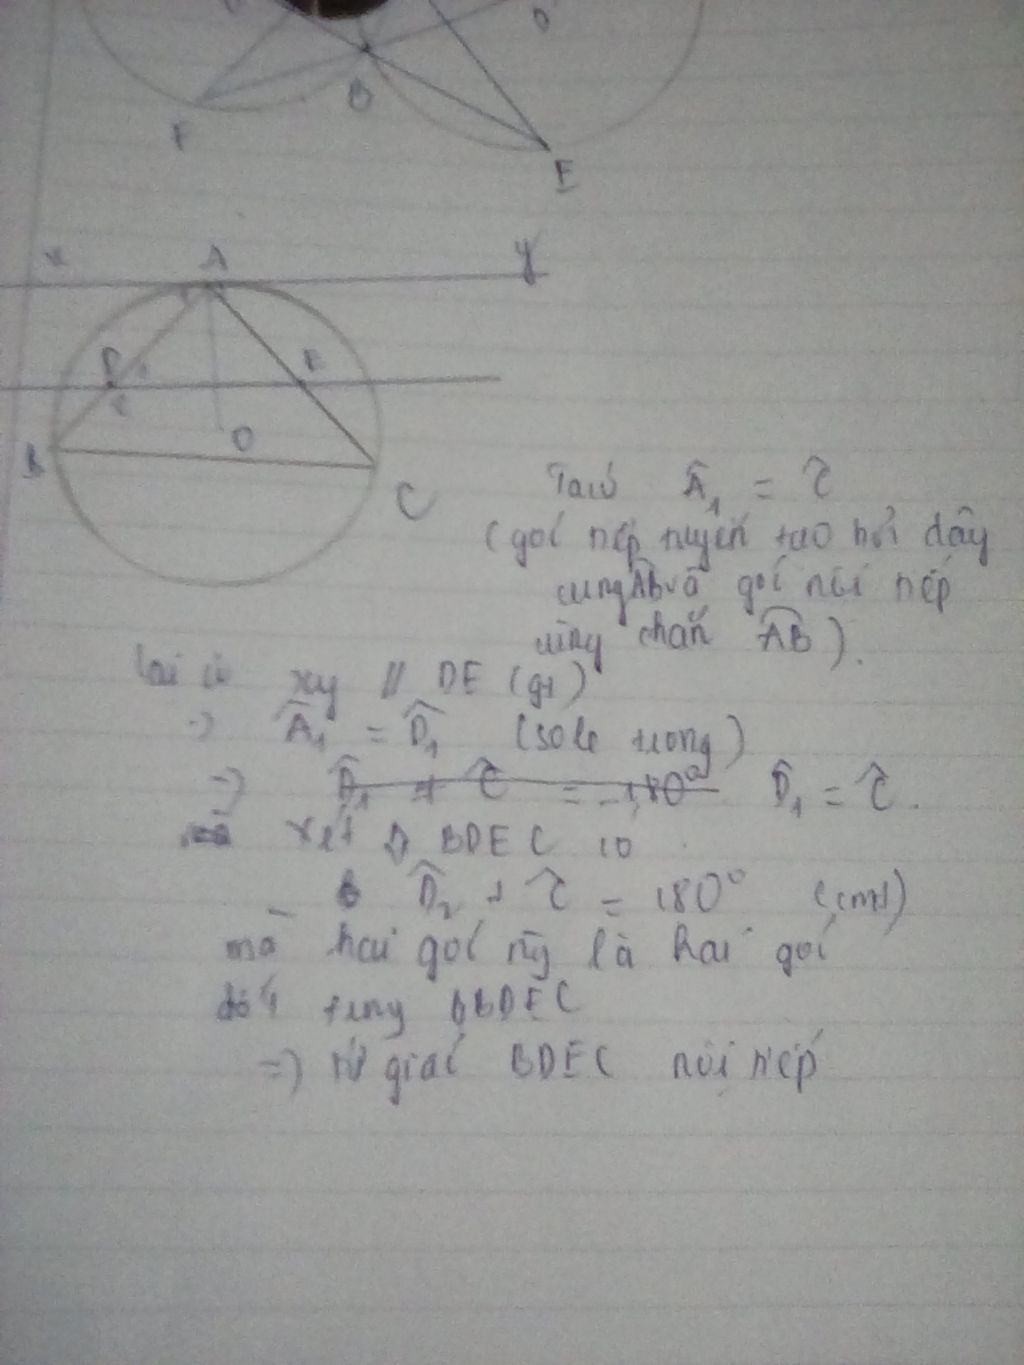 F
B
E
x A y
D E
B O
C
Ta có Â₁ = Ĉ
(góc tiếp tuyến tạo bởi dây
cung AB và góc nội tiếp
cùng chắn AB).
lại có xy // DE (gt)
=> Â₁ = D̂₁ (so le trong)
=> D̂₁ + Ĉ = 180° D̂₁ = Ĉ.
xét ◊ BDEC có
D̂₂ + Ĉ = 180° (cmt)
mà hai góc này là hai góc
đối trong ◊BDEC
=> tứ giác BDEC nội tiếp